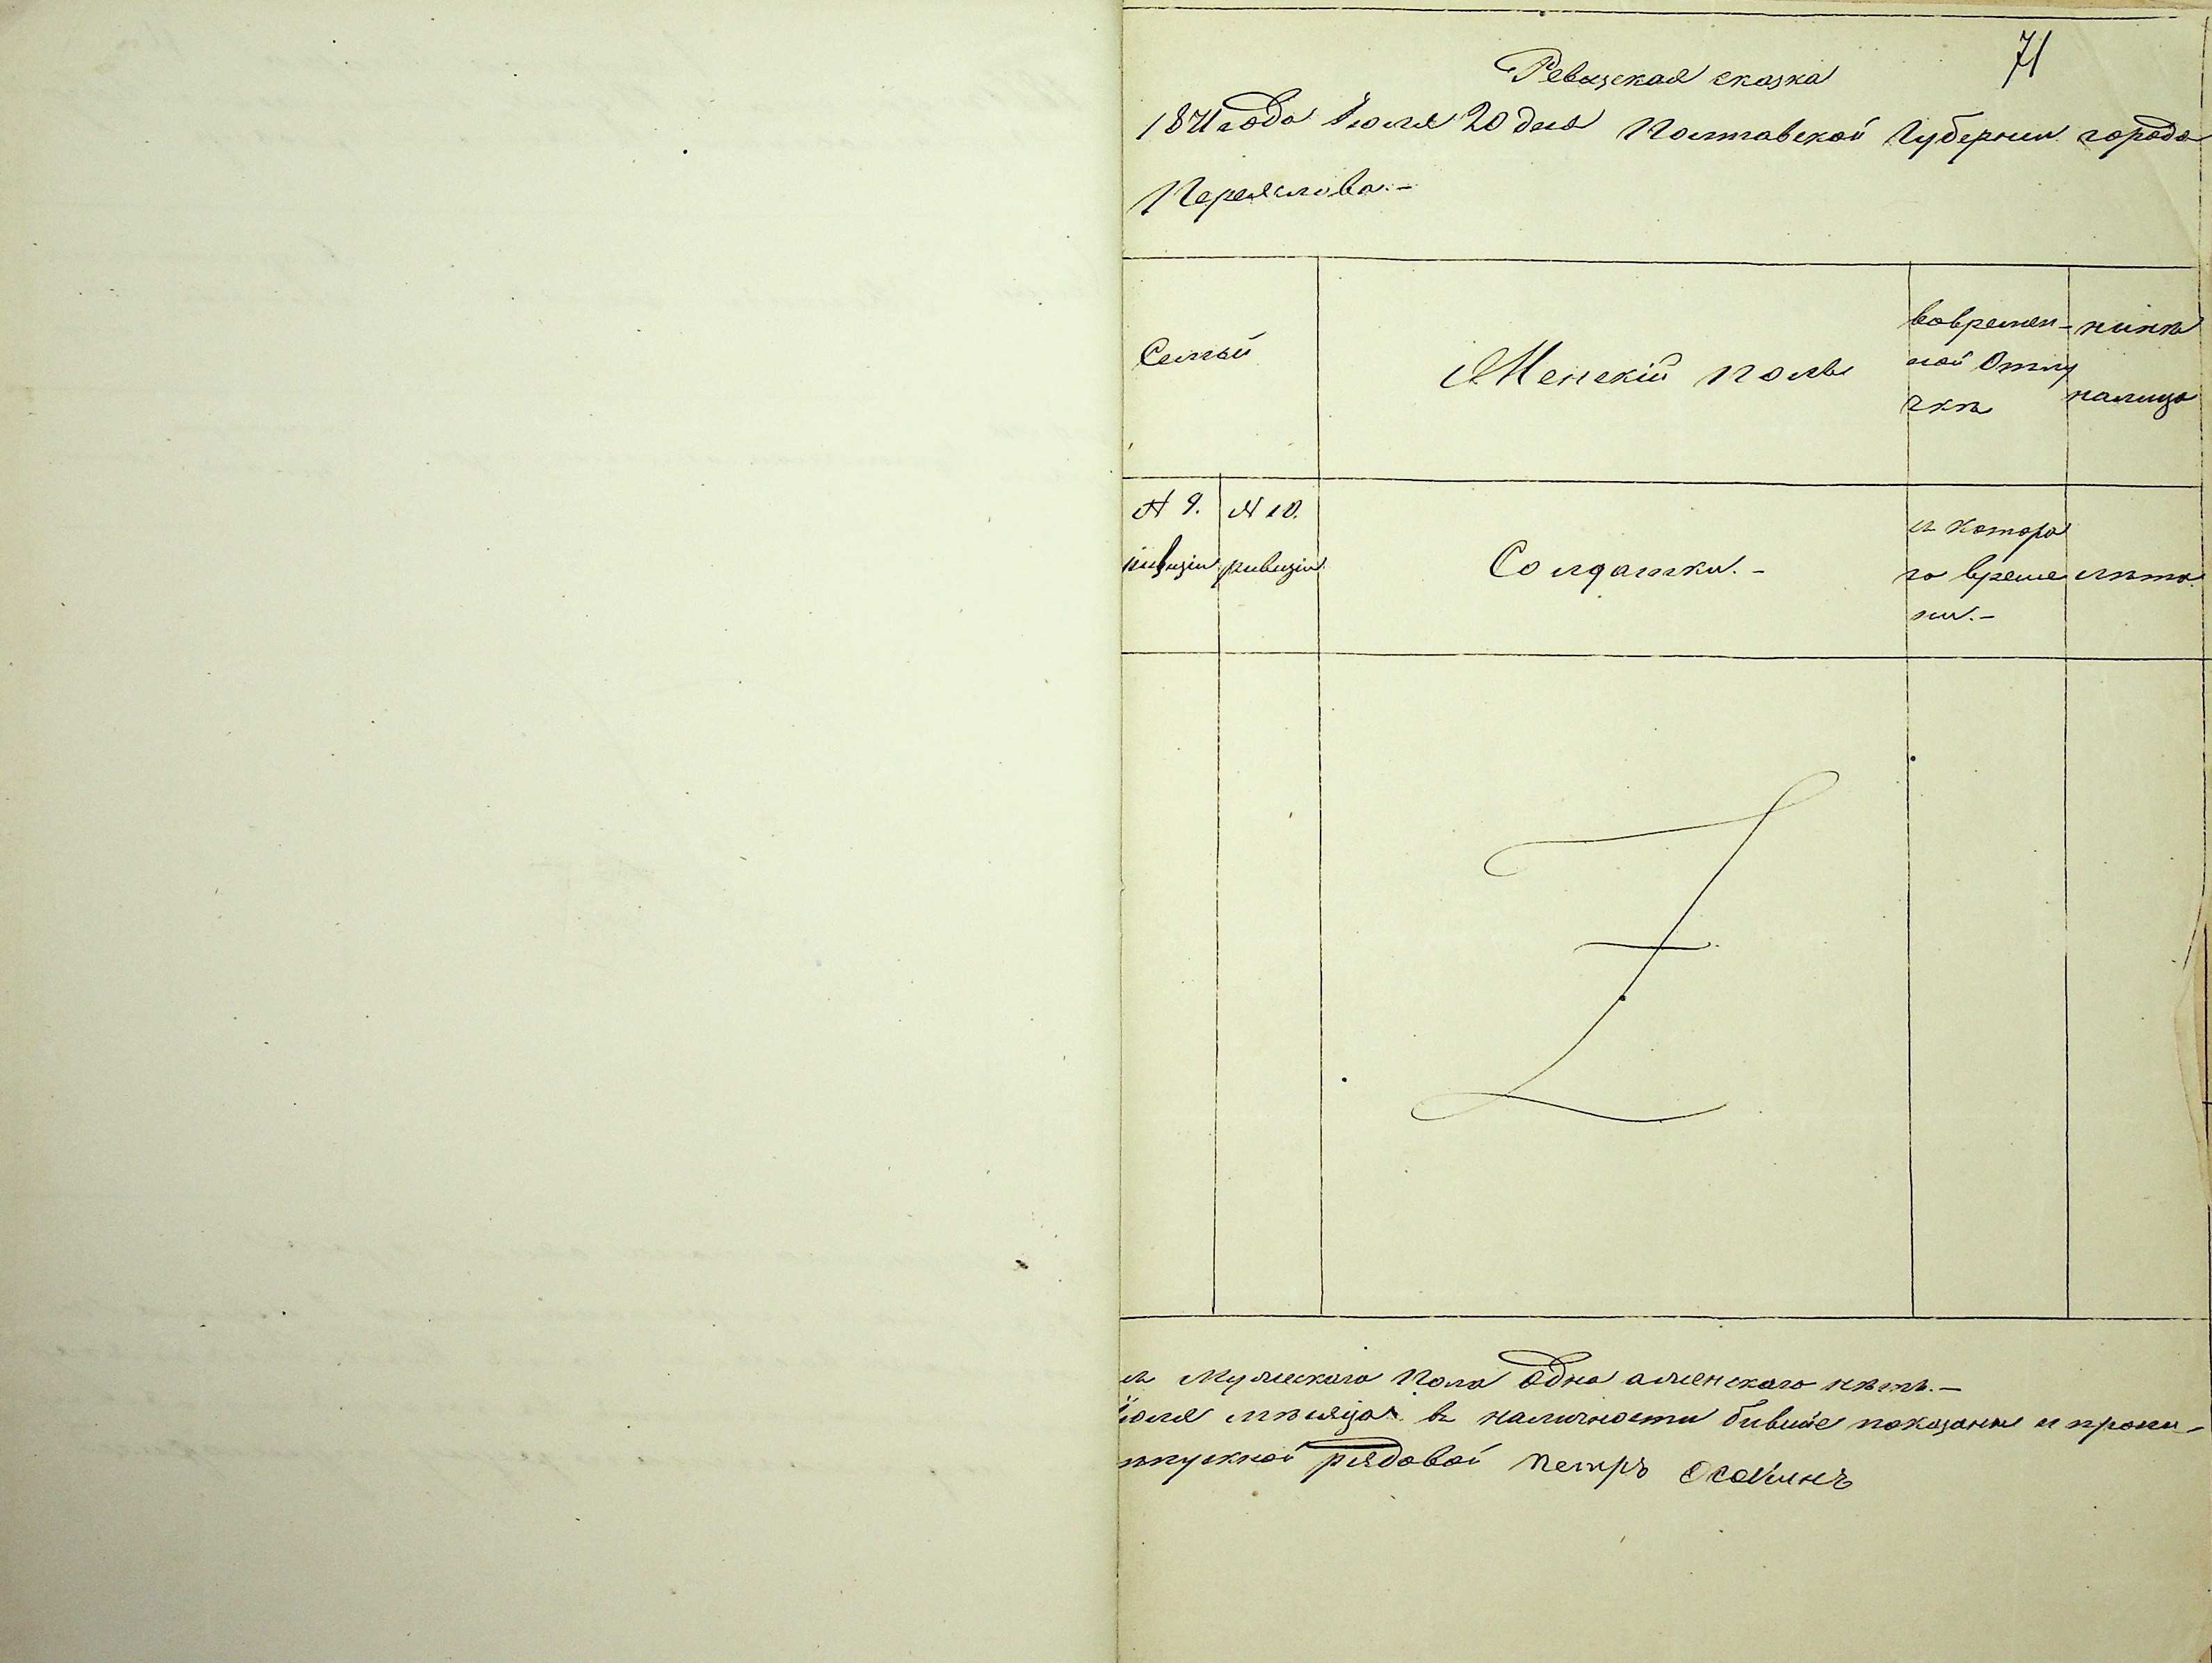 71
Ревизская сказка
1871 года Июля 20 дня Полтавской Губернии города
Переяслова.-
Семьи
Женскій полъ
вовремен-
ной Отлу
чкѣ
нинѣ
налицо
N 9.
ривизіи
N 10.
ривизіи
Солдатки.-
съ котора
го време
ни.-
лѣта.
Мужескаго Пола Одна а женскаго нѣтъ.-
мѣсяца в наличности бившіе показаны и
рядовой Петръ